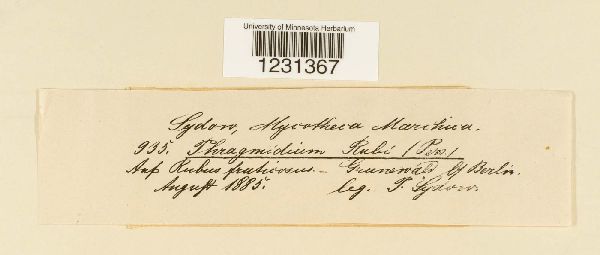 University of Minnesota Herbarium
1231367
Sydow, Mycotheca Marchica.
935. Phragmidium Rubi (Pers.)
Auf Rubus fruticosus. – Grunewald bei Berlin.
August 1885. leg. P. Sydow.